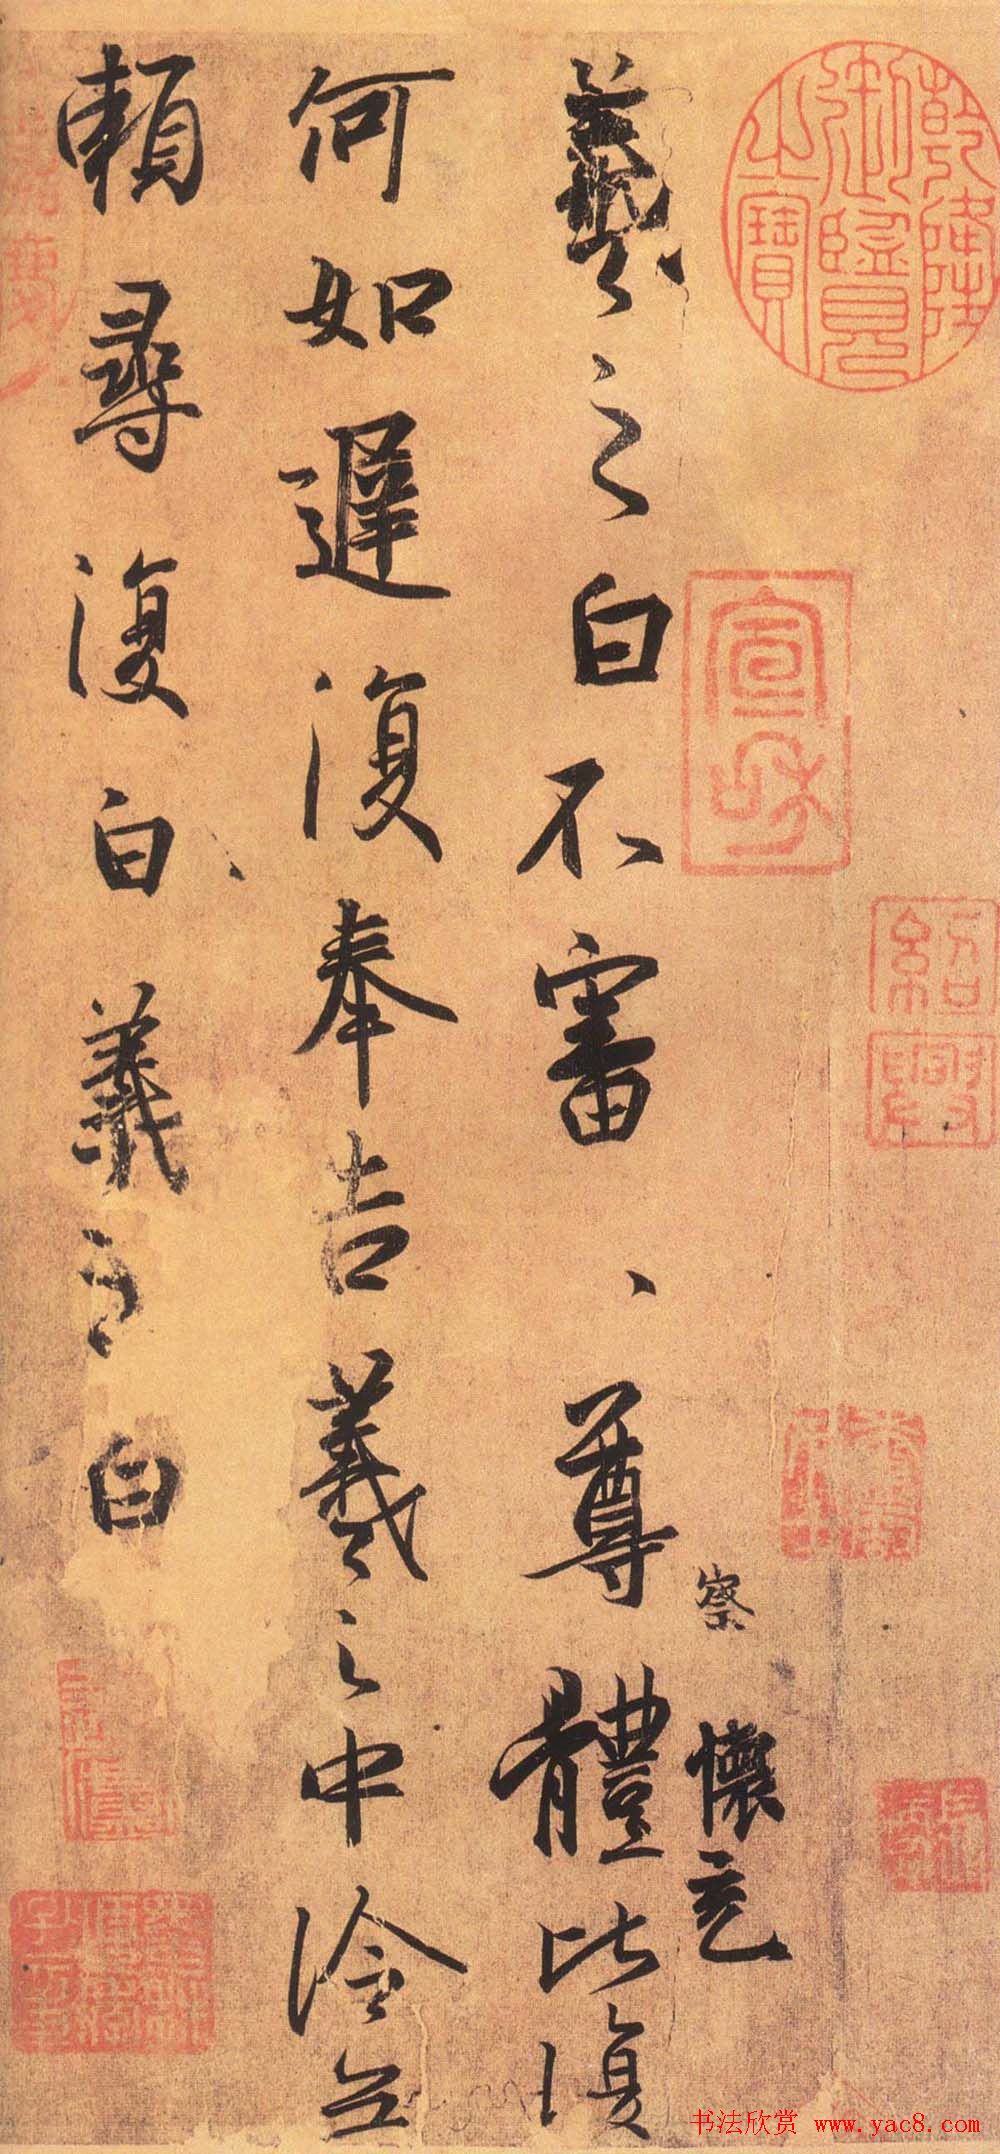 乾隆
御覽
之寶
宣和
紹興
察
懷充
羲之白不審、尊體比復
何如遲復奉告羲之中冷无
賴尋復白羲之白
书法欣赏 www.yac8.com